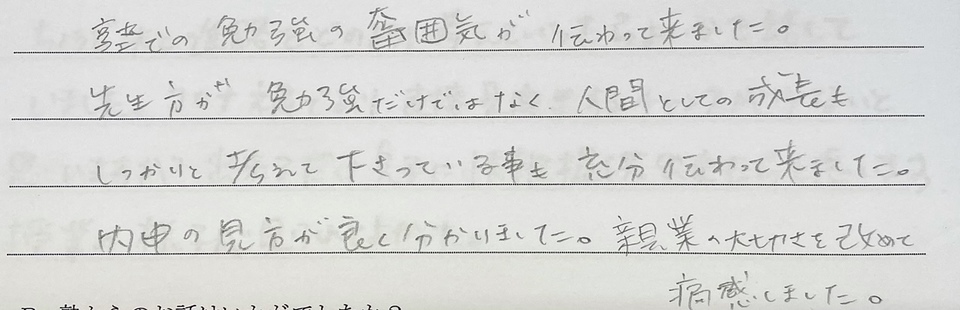 塾での勉強の雰囲気が伝わって来ました。
先生方が勉強だけではなく、人間としての成長も
しっかりと考えて下さっている事も充分伝わって来ました。
内申の見方が良く分かりました。親業の大切さを改めて
痛感しました。